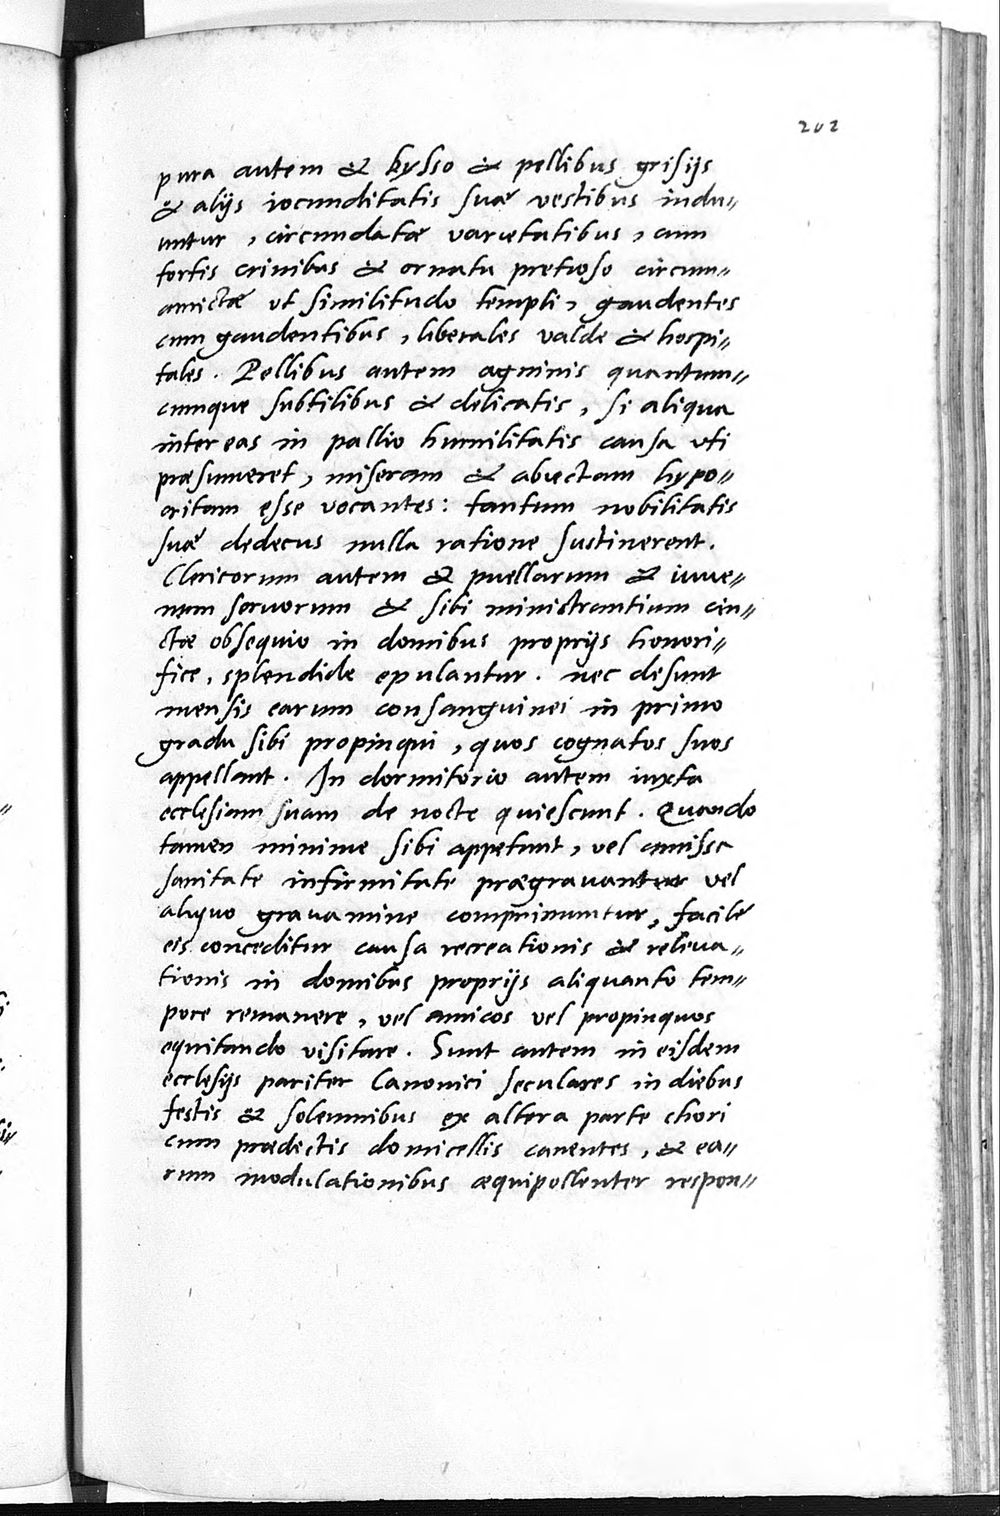 202
pura autem & bysso & pellibus grisijs
& alijs iocunditatis suæ vestibus indu=
untur, circundatæ varietatibus, cum
tortis crinibus & ornatu pretioso circum=
amictæ ut similitudo templi, gaudentes
cum gaudentibus, liberales valde & hospi=
tales. Pellibus autem agninis quantum=
cumque subtilibus & delicatis, si aliqua
inter eas in pallio humilitatis causa uti
præsumeret, miseram & abiectam hypo=
critam esse vocantes: tantum nobilitatis
suæ dedecus nulla ratione sustinerent.
Clericorum autem & puellarum & iuve=
num servorum & sibi ministrantium cin=
ctæ obsequio in domibus proprijs honori=
fice, splendide epulantur. nec desunt
mensis earum consanguinei in primo
gradu sibi propinqui, quos cognatos suos
appellant. In dormitorio autem iuxta
ecclesiam suam de nocte quiescunt. Quando
tamen minime sibi appetunt, vel amisse
sanitate infirmitate prægravantur vel
aliquo gravamine comprimuntur, facile
eis conceditur causa recreationis & releva=
tionis in domibus proprijs aliquanto tem=
pore remanere, vel amicos vel propinquos
equitando visitare. Sunt autem in eisdem
ecclesijs pariter Canonici seculares in diebus
festis & solemnibus ex altera parte chori
cum prædictis domicellis canentes, & ea=
rum modulationibus æquipollenter respon=